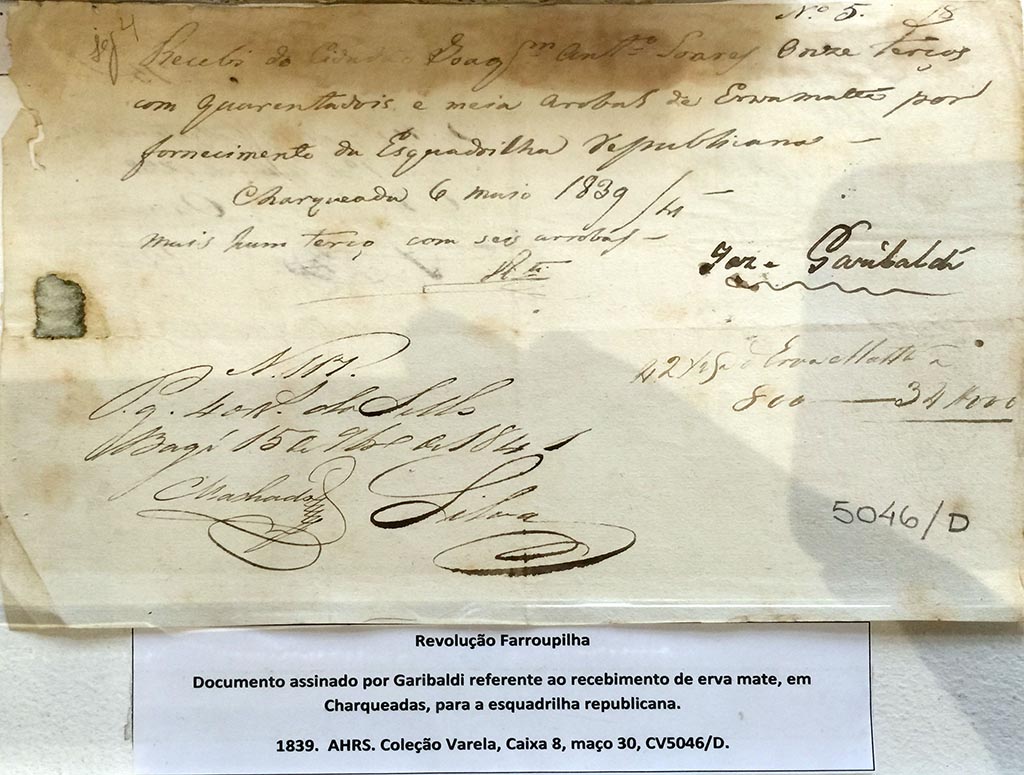 Nº 5. 18
Recebi do Cidadão Joaqm Antº Soares Onze terços
com quarentadois e meia arobas de Ervamatte por
fornecimento da Esquadrilha Republicana —
Charqueada 6 maio 1839
mais hum terço com seis arrobas —
Joze Garibaldi
42 ½ @ Erva Matte a
800 — 34#000
N. 117.
P. g. 40 rs. do Sello
Bagé 15 de 9bro de 1841
Machado Silva
5046/D
Revolução Farroupilha
Documento assinado por Garibaldi referente ao recebimento de erva mate, em
Charqueadas, para a esquadrilha republicana.
1839. AHRS. Coleção Varela, Caixa 8, maço 30, CV5046/D.